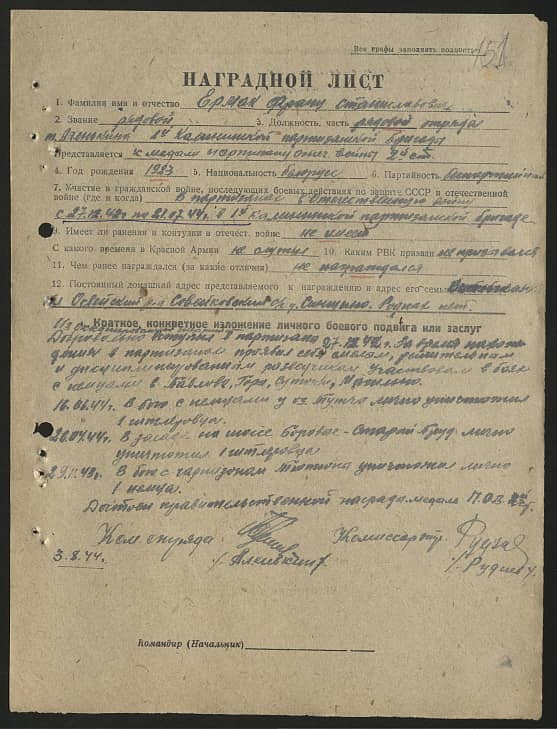 Все графы заполнять полностью
151
НАГРАДНОЙ ЛИСТ
1. Фамилия имя и отчество Ермак Франц Станиславович
2. Звание рядовой 3. Должность, часть рядовой отряда
1й Калининской партизанской бригады
Представляется к медали партизану отеч. войны 2й ст.
4. Год рождения 1923 5. Национальность белорус 6. Партийность беспартийный
7. Участие в гражданской войне, последующих боевых действиях по защите СССР и отечественной
войне (где и когда) В партизанах в отечественную войну
с 27.12.42г по 21.07.44г. в 1й Калининской партизанской бригаде
9. Имеет ли ранения и контузии в отечест. войне не имеет
С какого времени в Красной Армии не служил 10. Каким РВК призван не призывался
11. Чем ранее награждался (за какие отличия) не награждался
12. Постоянный домашний адрес представляемого к награждению и адрес его семьи
Освейский р-н с/с Родных нет.
1. Краткое, конкретное изложение личного боевого подвига или заслуг
Добровольно вступил в партизаны 27.12.42г. За время нахож-
дения в партизанах проявил себя смелым, решительным
и дисциплинированным разведчиком. Участвовал в боях
с немцами в Павлово, Гора,
16.06.44г. В бою с немцами у лично уничтожил
1 гитлеровца.
20.04.44г. В засаде на шоссе Боровое - Старый лично
уничтожил 1 гитлеровца
29.11.43г. В бою с гарнизоном уничтожил лично
1 немца.
Достоин правительственной награды медали П.О.В. 2й ст.
Ком отряда Комиссар отр.
3.8.44г.
Командир (Начальник)